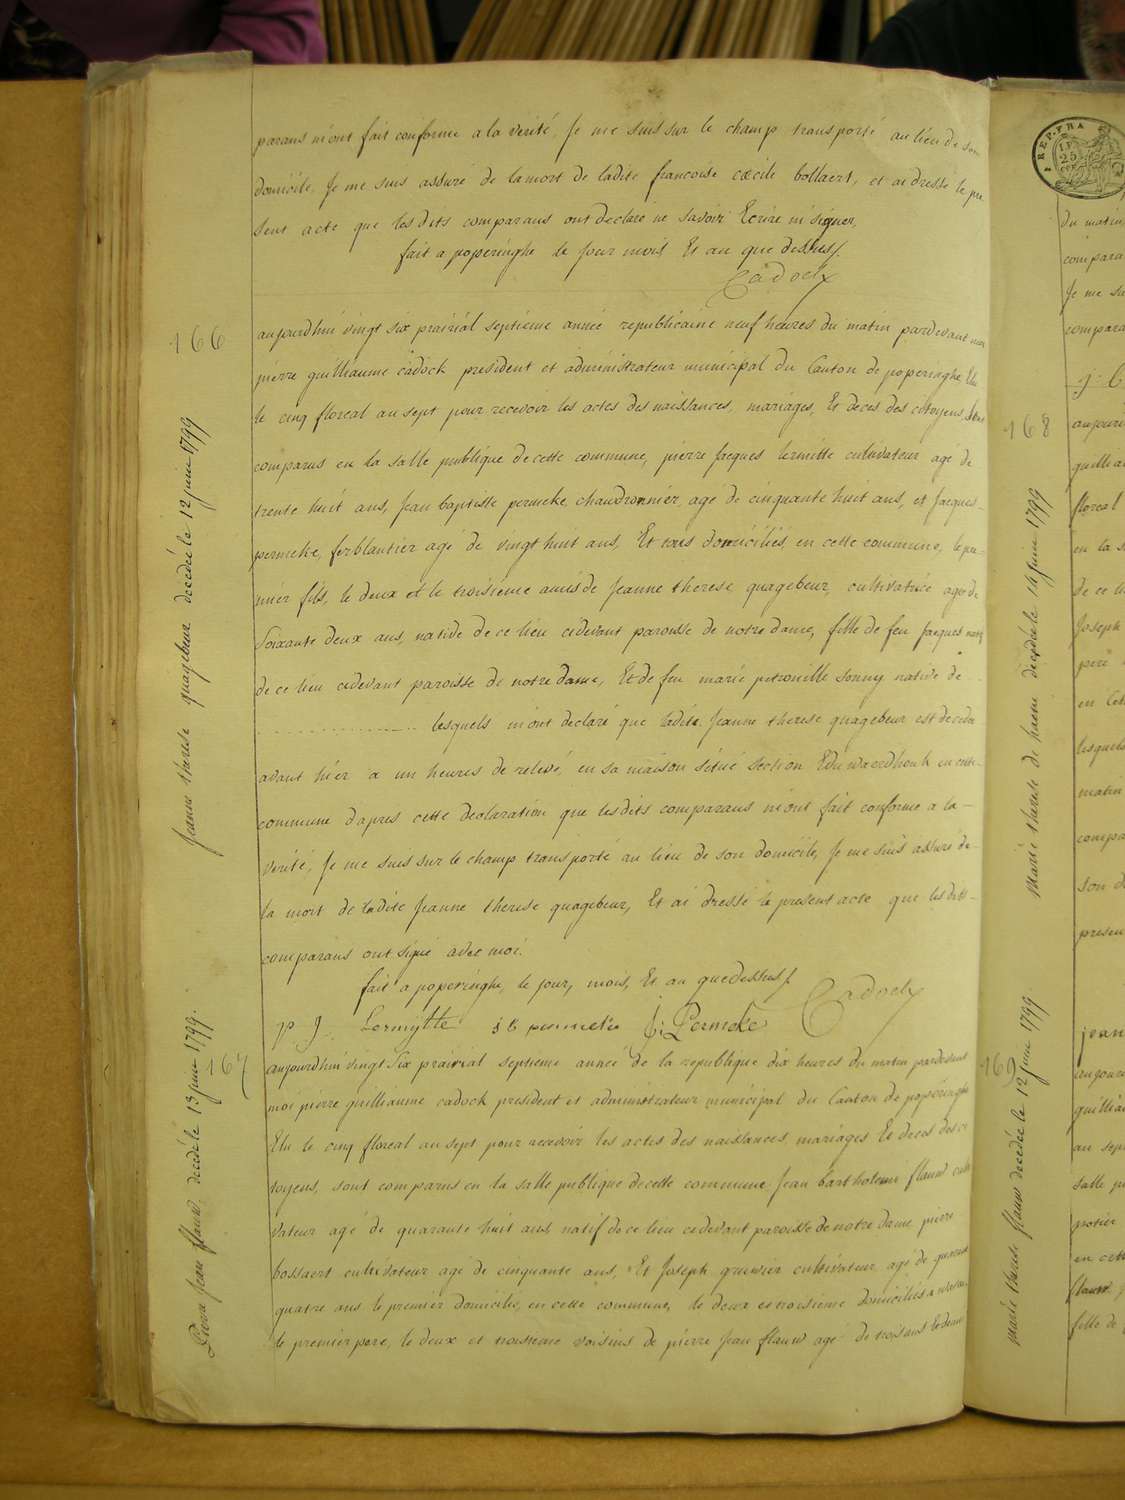 parans m'ont fait conforme a la verité, Je me suis sur le champ transporté au lieu de son
domicile, Je me suis assuré de la mort de ladite francoise cæcile bollaert, et ai dressé le pre
sent acte que les dits comparans ont declaré ne savoir Ecrire ni signer,
fait a poperinghe le jour mois Et an que dessus/.
Cadock
166
aujourdhui vingt six prairial septieme année republicaine neuf heures du matin pardevant moi
pierre guilliaume cadock president et administrateur municipal du Canton de poperinghe Elu
le cinq floreal an sept pour recevoir les actes des naissances, mariages, Et deces des citoyens, sont
comparus en la salle publique de cette commune, pierre Jacques lermitte cultivateur agé de
trente huit ans, Jean baptiste permeke, chaudronnier, agé de cinquante huit ans, et Jacques
permeke, ferblantier agé de vingt huit ans, Et tous domiciliés, en cette commune, le pre-
mier fils, le deux et le troisieme amis de Jeanne therese, quagebeur, cultivatrice agée de
Soixante deux ans, native de ce lieu cidevant paroisse de notre dame, fille de feu Jacques natif
de ce lieu cidevant paroisse de notre dame, Et de feu marie petronille sonny native de
lesquels m'ont declaré que ladite Jeanne therese quagebeur est decedée
avant hier a un heures de relevé, en sa maison situé section Edewaerdhouk en cette
commune d'apres cette declaration que lesdits comparans m'ont fait conforme a la
verité, Je me suis sur le champ transporté au lieu de son domicile, Je me suis assuré de
la mort de ladite Jeanne therese quagebeur, Et ai dressé le present acte que lesdits
comparans ont signé avec moi.
fait a poperinghe, le jour, mois, Et an que dessus/.
Cadock
p J Lermytte J B permeke J: Permeke
167
aujourdhui vingt Six prairial septieme année de la republique dix heures du matin pardevant
moi pierre guilliaume cadock president et administrateur municipal du Canton de poperinghe
Elu le cinq floreal an sept pour recevoir les actes des naissances mariages Et deces des ci
toyens, sont comparus en la salle publique de cette commune Jean bartholemi flauw culti
vateur agé de quarante huit ans natif de ce lieu cidevant paroisse de notre dame pierre
bossaert cultivateur agé de cinquante ans, Et Joseph gruwier cultivateur agé de quarante
quatre ans le premier domicilié, en cette commune, le deux et troisieme domiciliés a
le premier pere, le deux et troisieme voisins de pierre Jean flauw agé de trois ans
Jeanne therese quagebeur decedée le 12 juin 1799
Pierre Jean flauw, decedé le 13 juin 1799.
REP. FRA
25
du matin
compara
Je me su
compara
168
aujourd
guillia
floreal
en la s
de ce li
Joseph
pere
en Cett
lesquels
matin
compa
son d
presen
169
jean
aujour
guillia
an sep
salle p
potier
en cett
flauw
fille de
Marie therese de haene decedée le 14 juin 1799
marie therese flauw decedée le 12 juin 1799